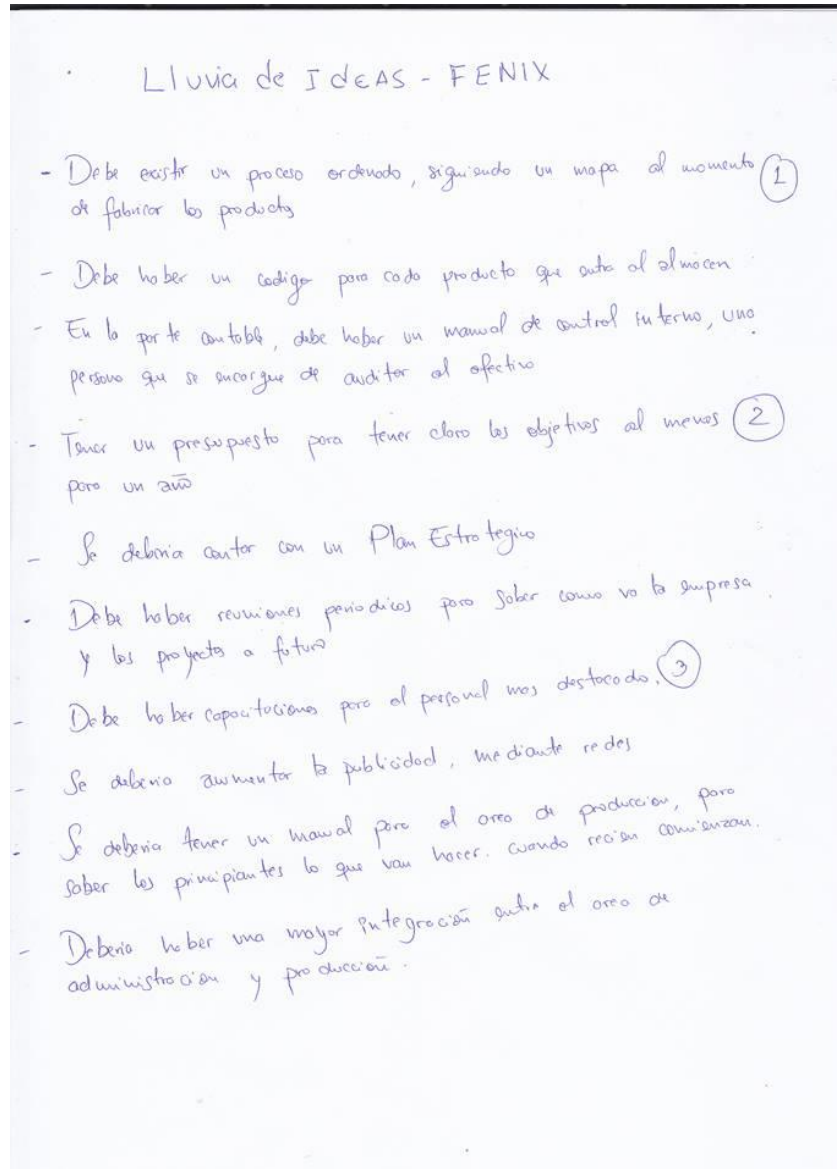 Lluvia de IdEAS - FENIX
- Debe existir un proceso ordenado, siguiendo un mapa al momento 1
de fabricar los productos
- Debe haber un codigo para cada producto que entra al almacen
- En la parte contable, debe haber un manual de control interno, una
persona que se encargue de auditar el efectivo
- Tener un presupuesto para tener claro los objetivos al menos 2
para un año
- Se deberia contar con un Plan Estrategico
- Debe haber reuniones periodicas para saber como va la empresa
y los proyectos a futuro
- Debe haber capacitaciones para el personal mas destacado. 3
- Se deberia aumentar la publicidad, mediante redes
- Se deberia tener un manual para el area de produccion, para
saber los principiantes lo que van hacer. cuando recien comienzan.
- Deberia haber una mayor integración entre el area de
administracion y producción.